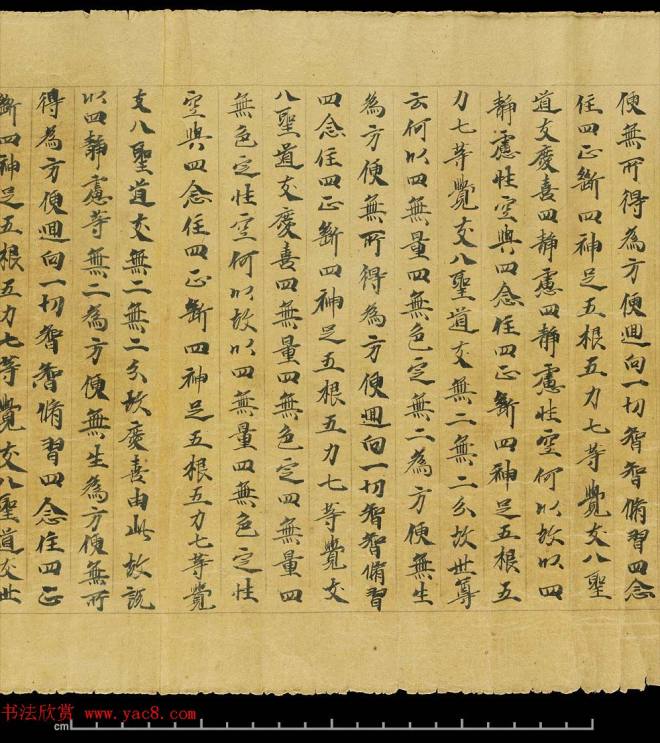 便無所得為方便迴向一切智智脩習四念
住四正斷四神足五根五力七等覺支八聖
道支慶喜四静慮四静慮性空何以故以四
静慮性空與四念住四正斷四神足五根五
力七等覺支八聖道支無二無二分故世尊
云何以四無量四無色定無二為方便無生
為方便無所得為方便迴向一切智智脩習
四念住四正斷四神足五根五力七等覺支
八聖道支慶喜四無量四無色定四無量四
無色定性空何以故以四無量四無色定性
空與四念住四正斷四神足五根五力七等覺
支八聖道支無二無二分故慶喜由此故説
以四静慮等無二為方便無生為方便無所
得為方便迴向一切智智脩習四念住四正
斷四神足五根五力七等覺支八聖道支世
书法欣赏 www.yac8.com
cm